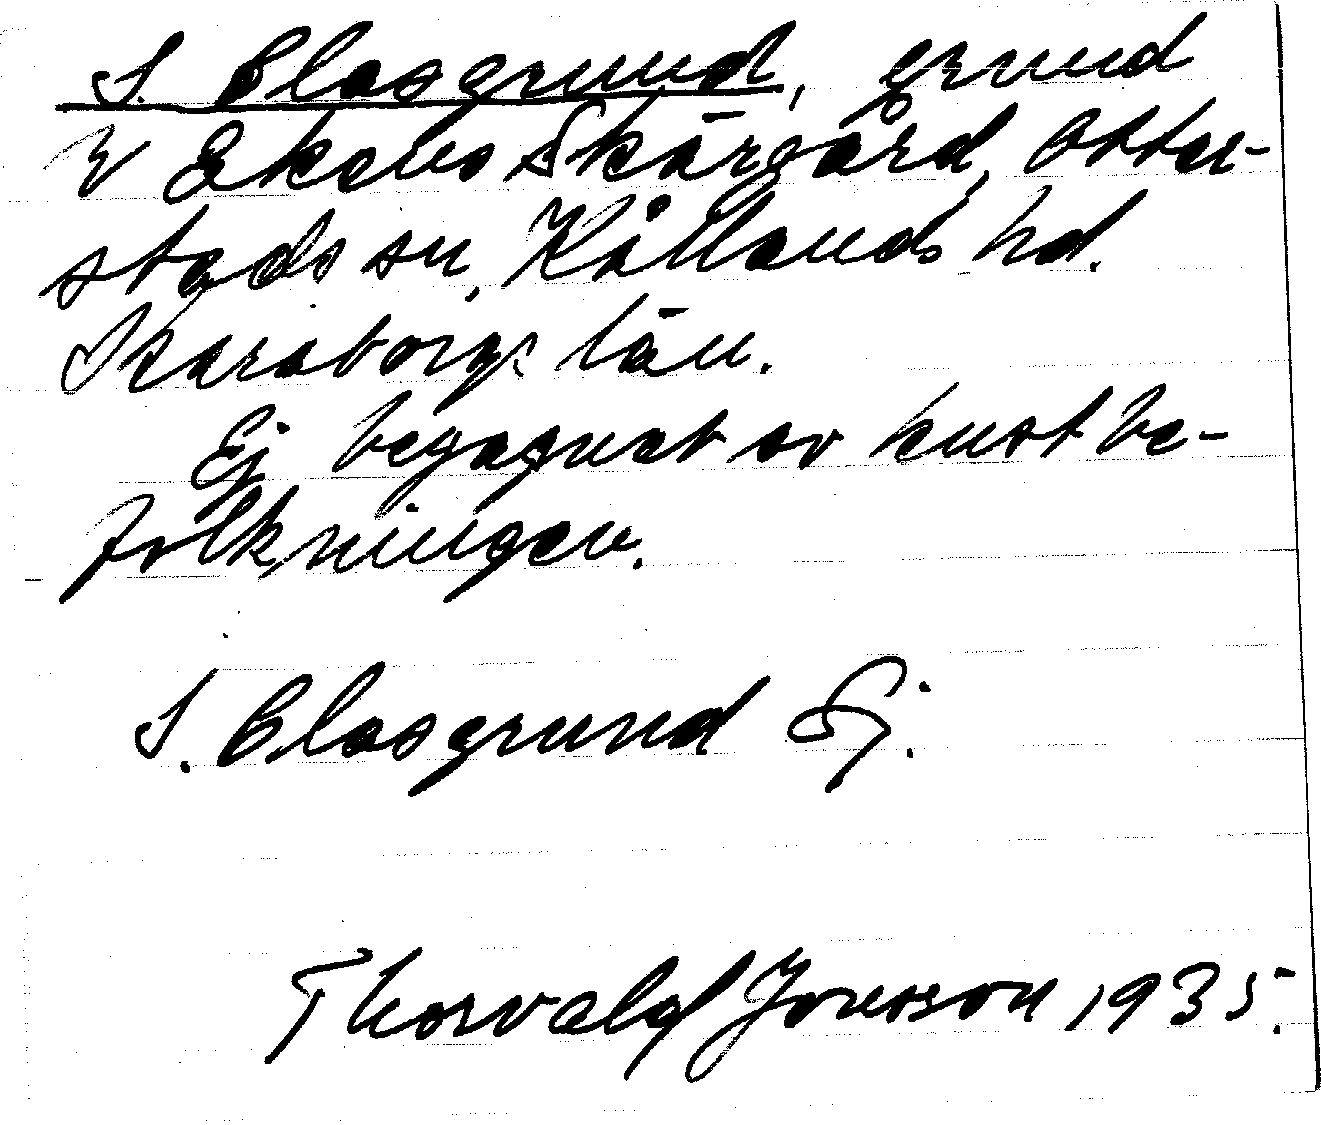 S. Clasgrund, grund
i Ekens Skärgård, Otter-
stads sn, Kållands hd.
Skaraborgs län.
Ej begagnat av kustbe-
folkningen.
S. Clasgrund Sj.
Thorvald Jonsson 1935.